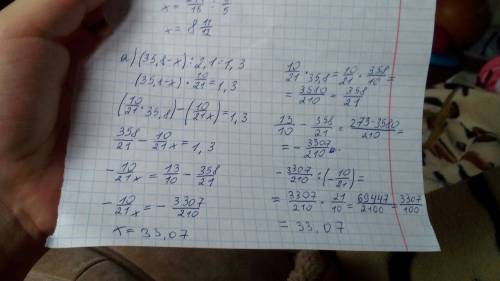 x = 8 11/12
а) (35,8-x) : 2,1 = 1,3
(35,8-x) · 10/21 = 1,3
(10/21 · 35,8) - (10/21x) = 1,3
358/21 - 10/21x = 1,3
- 10/21x = 13/10 - 358/21
- 10/21x = - 3307/210
x = 33,07
10/21 · 35,8 = 10/21 · 358/10 =
= 3580/210 = 358/21
13/10 - 358/21 = 273-3580/210 =
= - 3307/210
- 3307/210 : (- 10/21) =
= 3307/210 · 21/10 = 69447/2100 = 3307/100
= 33,07